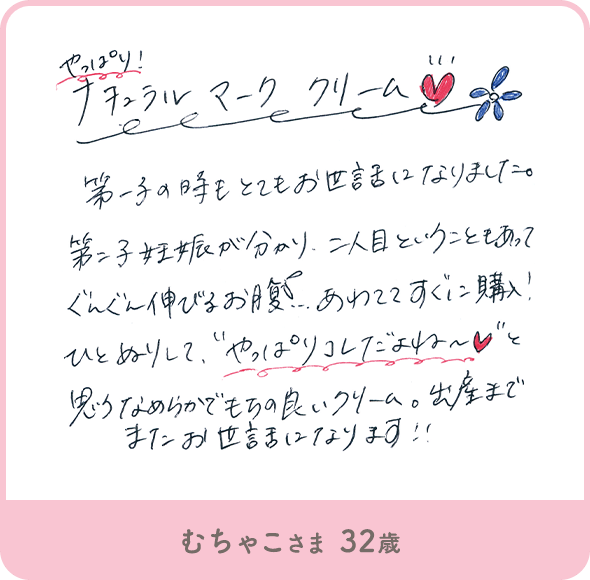 やっぱり!
ナチュラル マーク クリーム
第一子の時もとてもお世話になりました。
第二子妊娠が分かり、二人目ということもあって
ぐんぐん伸びるお腹… あわててすぐに購入!
ひとぬりして、"やっぱりコレだよね〜"と
思うなめらかでもちの良いクリーム。出産まで
またお世話になります!!
むちゃこさま 32歳